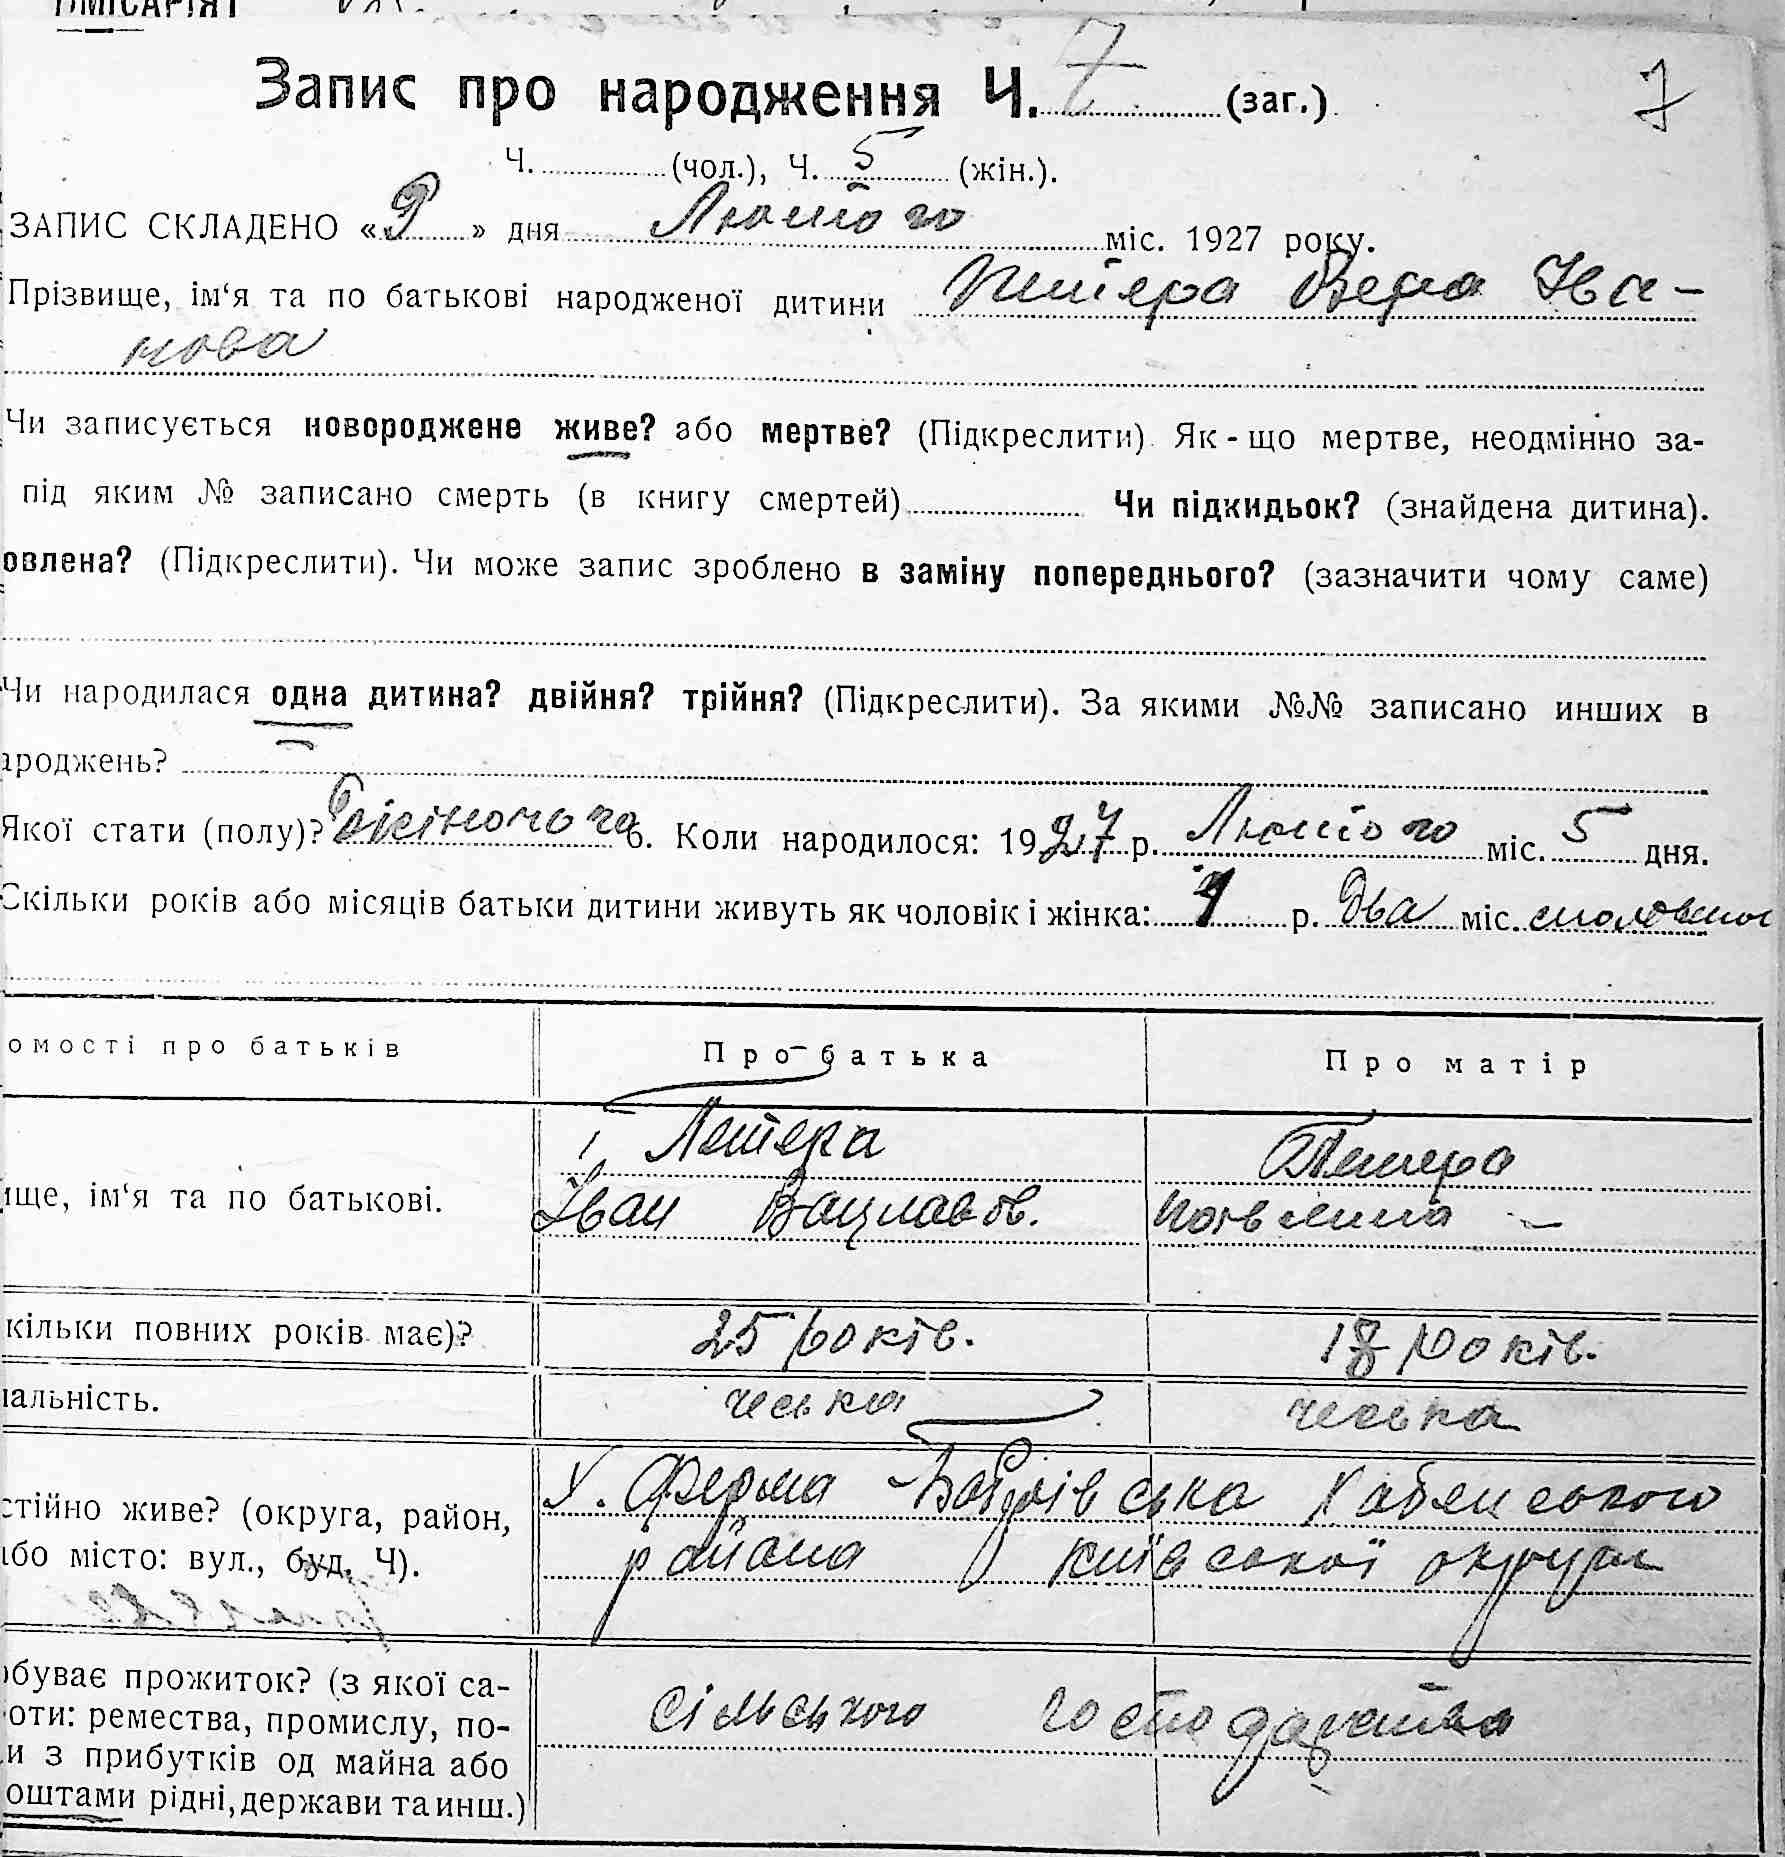 Запис про народження Ч. 7 (заг.) 7
Ч. (чол.), Ч. 5 (жін.).
ЗАПИС СКЛАДЕНО «9» дня Лютого міс. 1927 року.
Прізвище, ім‘я та по батькові народженої дитини Петера Вера Іва-
нова
Чи записується новороджене живе? або мертве? (Підкреслити) Як-що мертве, неодмінно за-
під яким № записано смерть (в книгу смертей) Чи підкидьок? (знайдена дитина).
овлена? (Підкреслити). Чи може запис зроблено в заміну попереднього? (зазначити чому саме)
Чи народилася одна дитина? двійня? трійня? (Підкреслити). За якими №№ записано инших в
ароджень?
Якої стати (полу)? Жіночого. Коли народилося: 1927 р. Лютого міс. 5 дня.
Скільки років або місяців батьки дитини живуть як чоловік і жінка: 1 р. два міс.
омості про батьків Про батька Про матір
Петера Петера
ище, ім‘я та по батькові. Іван Вацлавов.
кільки повних років має)? 25 років. 18 років.
іальність. чеська чеська
стійно живе? (округа, район, Х. Ферма Хабенського
або місто: вул., буд. Ч). района київської округи
обуває прожиток? (з якої са-
оти: ремества, промислу, по- сільського господарства
и з прибутків од майна або
оштами рідні, держави та инш.)